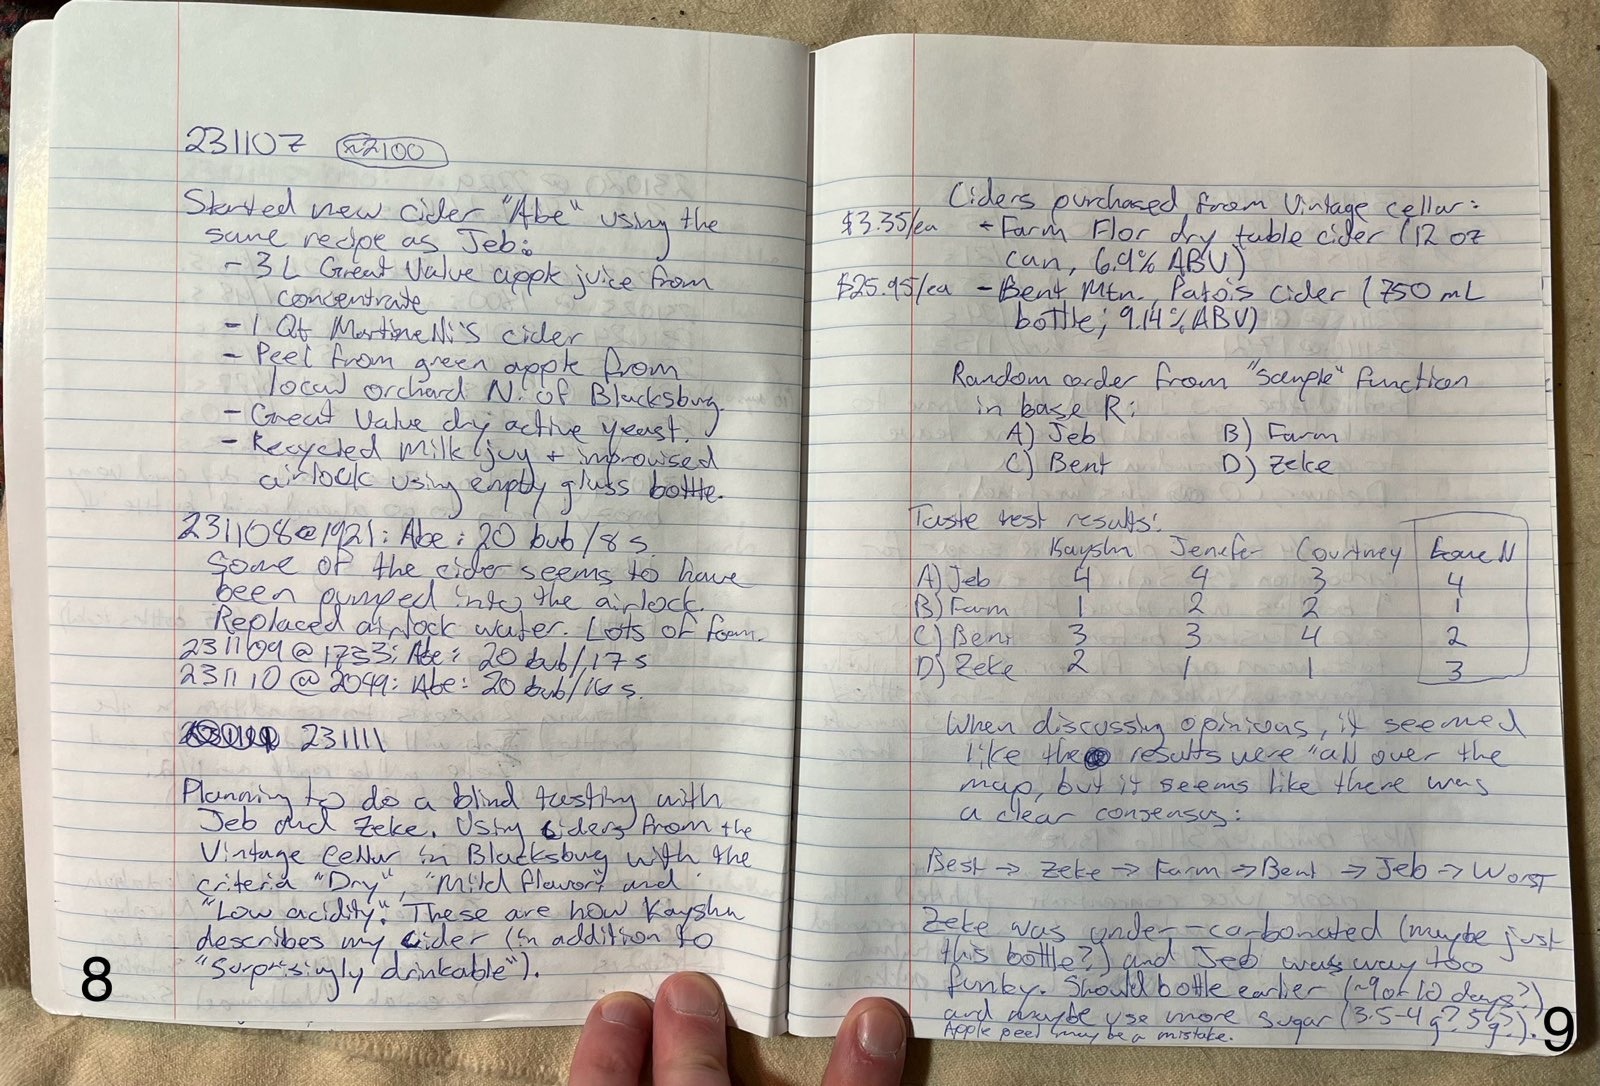 231107 ~2100
Started new cider "Abe" using the
same recipe as Jeb:
- 3 L Great Value apple juice from
concentrate
- 1 Qt Martinelli's cider
- Peel from green apple from
local orchard N. of Blacksburg.
- Great Value dry active yeast.
- Recycled milk jug + improvised
airlock using empty glass bottle.
231108@1921: Abe: 20 bub/8 s.
Some of the cider seems to have
been pumped into the airlock.
Replaced airlock water. Lots of foam.
231109 @ 1733: Abe: 20 bub/17 s
231110 @ 2049: Abe: 20 bub/16 s.
231111
Planning to do a blind tasting with
Jeb and Zeke. Using ciders from the
Vintage Cellar in Blacksburg with the
criteria "Dry", "Mild flavor", and
"Low acidity". These are how Kayshu
describes my cider (in addition to
"Surprisingly drinkable").
8
Ciders purchased from Vintage cellar:
$3.35/ea - Farm Flor dry table cider (12 oz
can, 6.9% ABV)
$25.95/ea - Bent Mtn. Patois cider (750 mL
bottle; 9.14% ABV)
Random order from "sample" function
in base R:
A) Jeb B) Farm
C) Bent D) Zeke
Taste test results:
Jenefer Courtney N
A) Jeb 4 4 3 4
B) Farm 1 2 2 1
C) Bent 3 3 4 2
D) Zeke 2 1 1 3
When discussing opinions, it seemed
like the results were "all over the
map, but it seems like there was
a clear consensus:
Best → Zeke → Farm → Bent → Jeb → Worst
Zeke was under-carbonated (maybe just
this bottle?) and Jeb was way too
funky. Should bottle earlier (~9 or 10 days?)
and maybe use more sugar (3.5-4 g? 5 g?).
Apple peel may be a mistake.
9